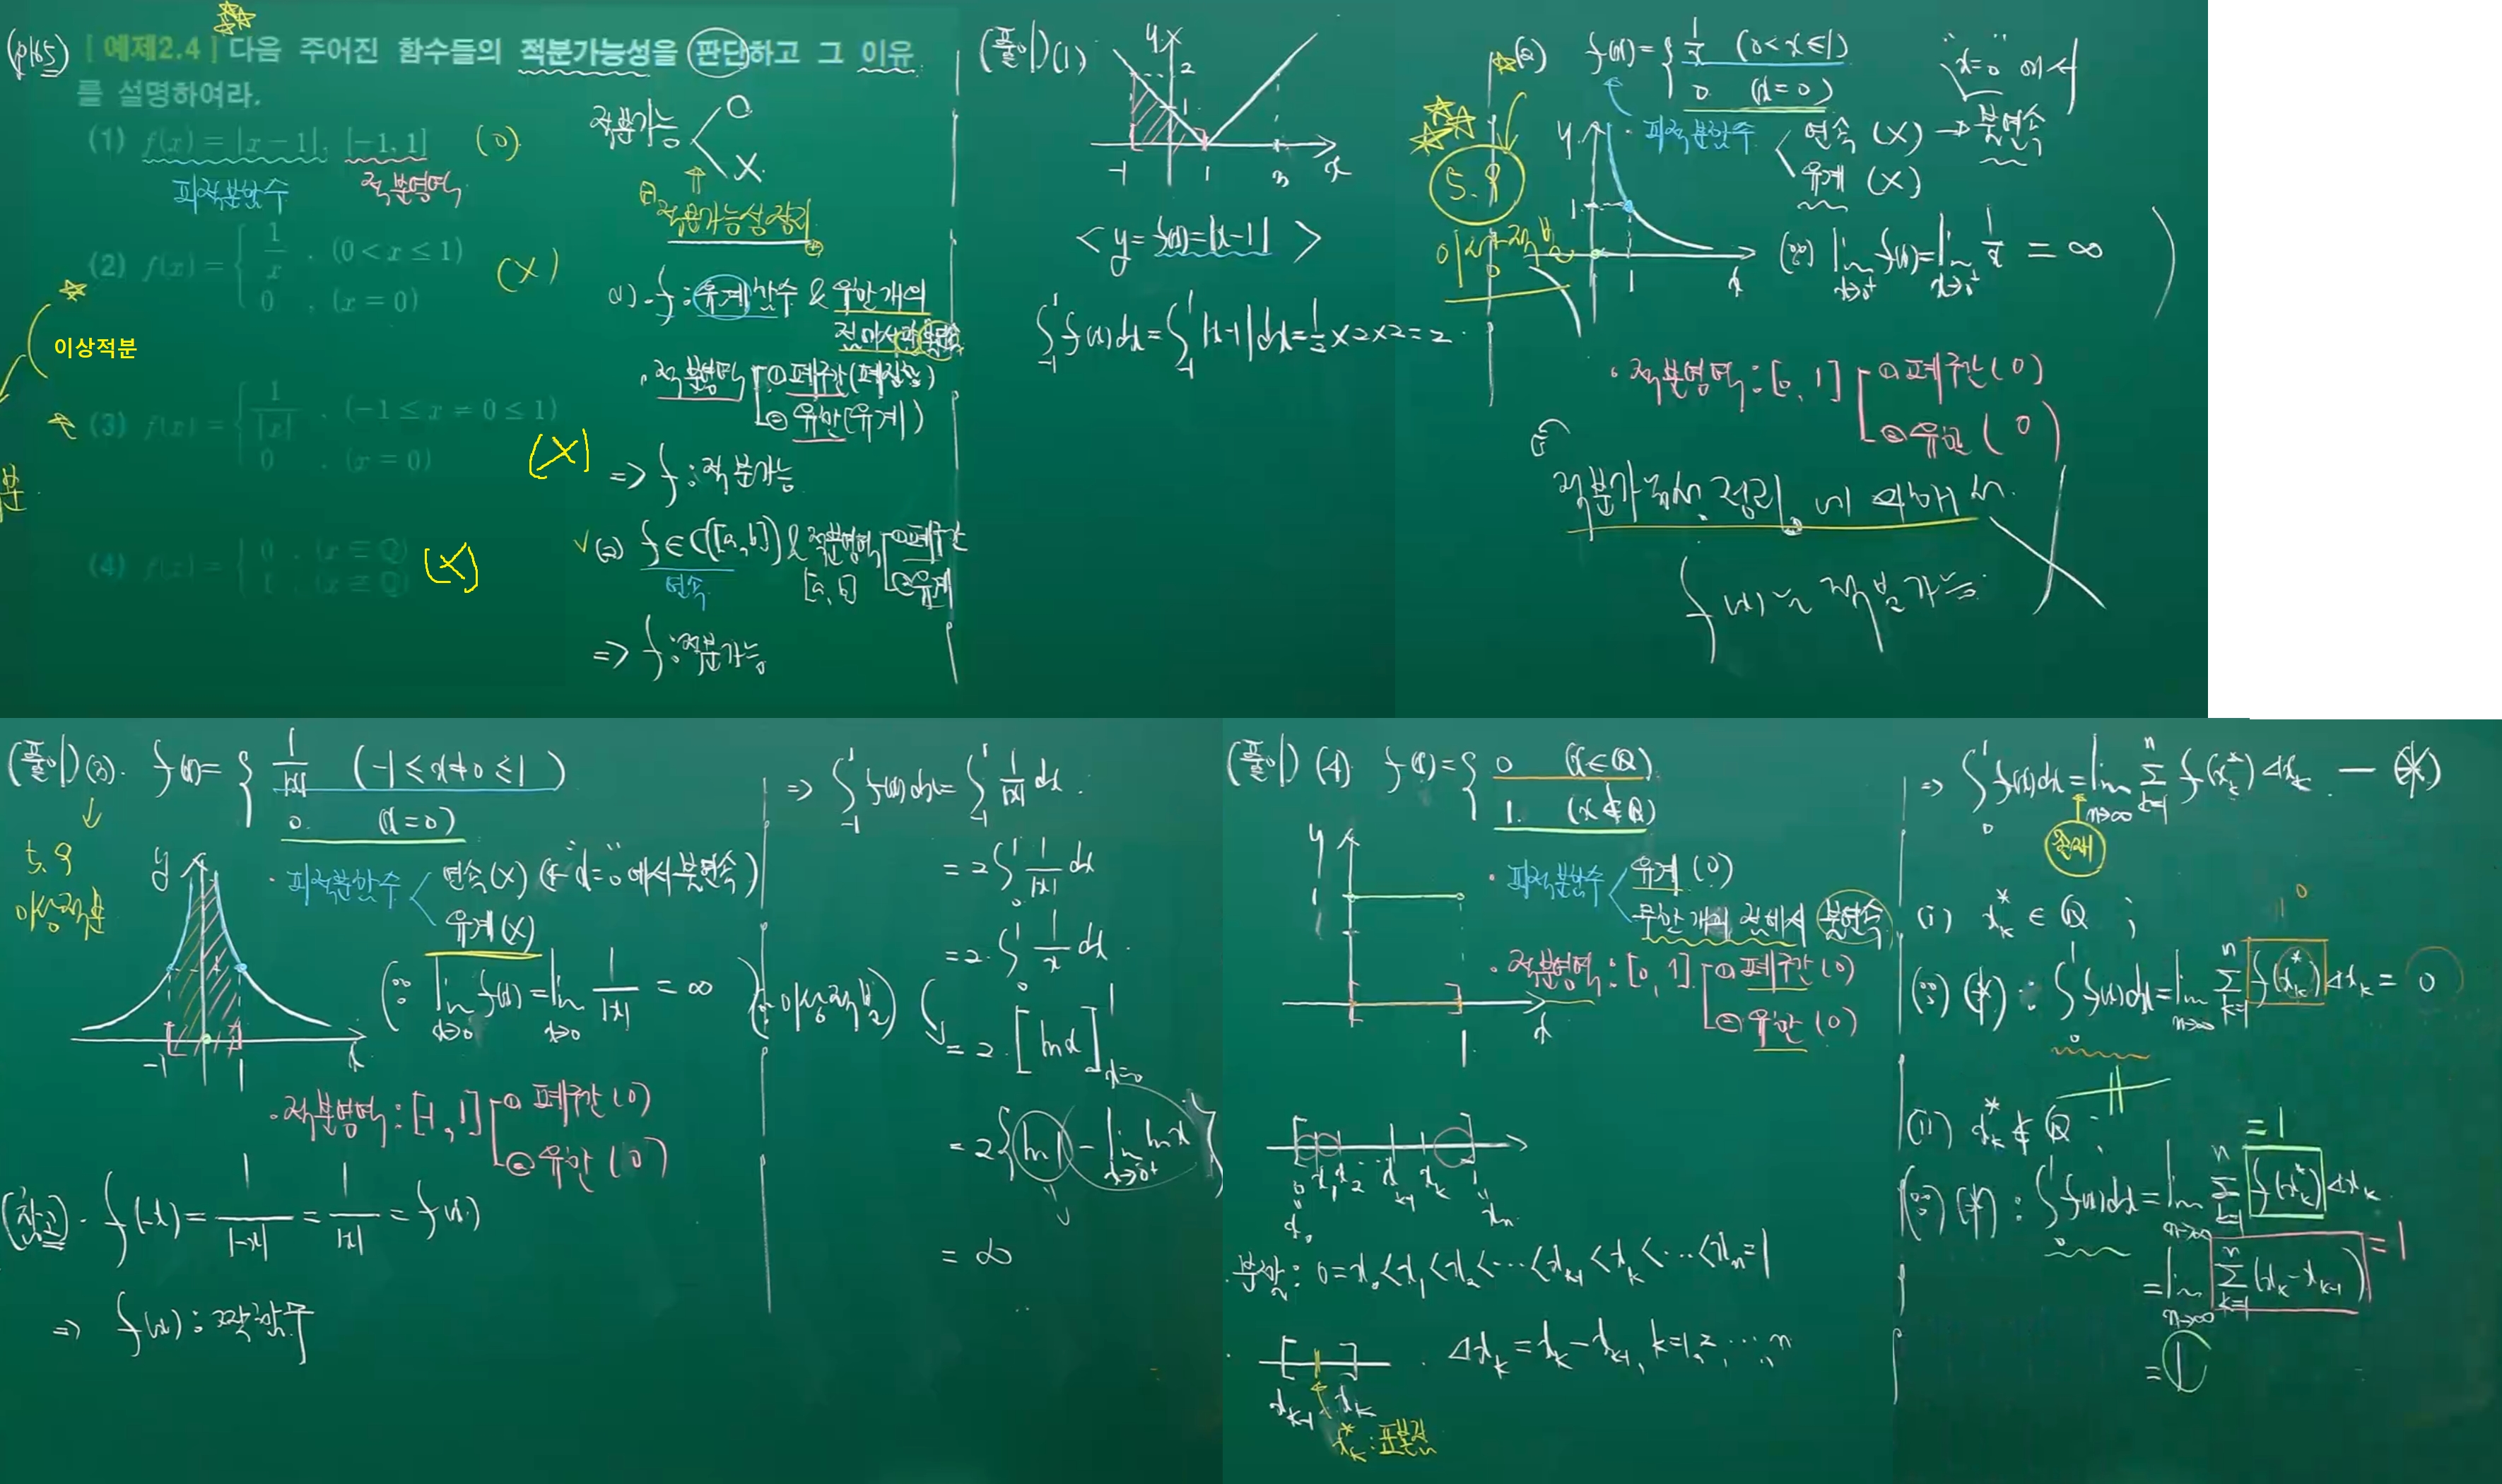 (p165) [예제2.4] 다음 주어진 함수들의 적분가능성을 판단하고 그 이유
를 설명하여라.
(1) f(x) = |x-1|, [-1, 1] (O)
피적분함수 적분영역
(2) f(x) = { 1/x , (0 < x ≤ 1) (X)
0 , (x = 0)
이상적분
(3) f(x) = { 1/|x| , (-1 ≤ x ≠ 0 ≤ 1) (X)
0 , (x = 0)
(4) f(x) = { 0 , (x ∈ Q) (X)
1 , (x ∉ Q)
적분가능 O
X
적분가능성정리
(1). f : 유계함수 & 유한개의
점에서만 불연속
· 적분영역 ① 폐구간(폐집합)
② 유한(유계)
=> f : 적분가능
√ (2) f ∈ C([a, b]) & 적분영역 ① 폐구간
연속 [a, b] ② 유계
=> f : 적분가능
(풀이) (1)
y
2
1
-1 1 3 x
< y = f(x) = |x-1| >
∫₋₁¹ f(x)dx = ∫₋₁¹ |x-1| dx = 1/2 × 2 × 2 = 2.
(2) f(x) = { 1/x (0 < x ≤ 1) "x=0" 에서
0 (x = 0)
· 피적분함수 연속 (X) → 불연속
유계 (X)
5.9
이상적분
y
1
1 x
(∵) lim x→0⁺ f(x) = lim x→0⁺ 1/x = ∞
· 적분영역 : [0, 1] ① 폐구간 (O)
② 유한 (O)
적분가능성 정리 에 의해서
f(x)는 적분가능
(풀이) (3). f(x) = { 1/|x| (-1 ≤ x ≠ 0 ≤ 1)
0. (x = 0)
5.9
이상적분
y
-1 1 x
· 피적분함수 연속(X) (← "x=0"에서 불연속)
유계(X)
(∵ lim x→0 f(x) = lim x→0 1/|x| = ∞)
· 적분영역 : [-1, 1] ① 폐구간 (O)
② 유한 (O)
(참고) · f(-x) = 1/|-x| = 1/|x| = f(x)
=> f(x) : 짝함수
=> ∫₋₁¹ f(x)dx = ∫₋₁¹ 1/|x| dx.
= 2 ∫₀¹ 1/|x| dx
= 2. ∫₀¹ 1/x dx.
(∵ 이상적분) = 2. [ln x]¹ₓ₌₀
= 2{ln 1 - lim x→0⁺ ln x}
= ∞
(풀이) (4). f(x) = { 0 (x ∈ Q)
1. (x ∉ Q)
y
1
1. x
· 피적분함수 유계 (O)
무한개의 점에서 불연속
· 적분영역 : [0, 1] ① 폐구간 (O)
② 유한 (O)
0 x₁ x₂ ... xₖ₋₁ xₖ 1
x₀ xₙ
· 분할 : 0 = x₀ < x₁ < x₂ < ... < xₖ₋₁ < xₖ < ... < xₙ = 1
· Δxₖ = xₖ - xₖ₋₁, k = 1, 2, ..., n
xₖ₋₁ xₖ
xₖ* : 표본점
=> ∫₀¹ f(x)dx = lim n→∞ Σₖ₌₁ⁿ f(xₖ*) Δxₖ — (*)
존재
(i) xₖ* ∈ Q ;
(∵) (*) : ∫₀¹ f(x)dx = lim n→∞ Σₖ₌₁ⁿ f(xₖ*) Δxₖ = 0
(ii) xₖ* ∉ Q ;
= 1
(∵) (*) : ∫₀¹ f(x)dx = lim n→∞ Σₖ₌₁ⁿ f(xₖ*) Δxₖ
= lim n→∞ Σₖ₌₁ⁿ (xₖ - xₖ₋₁) = 1
= 1